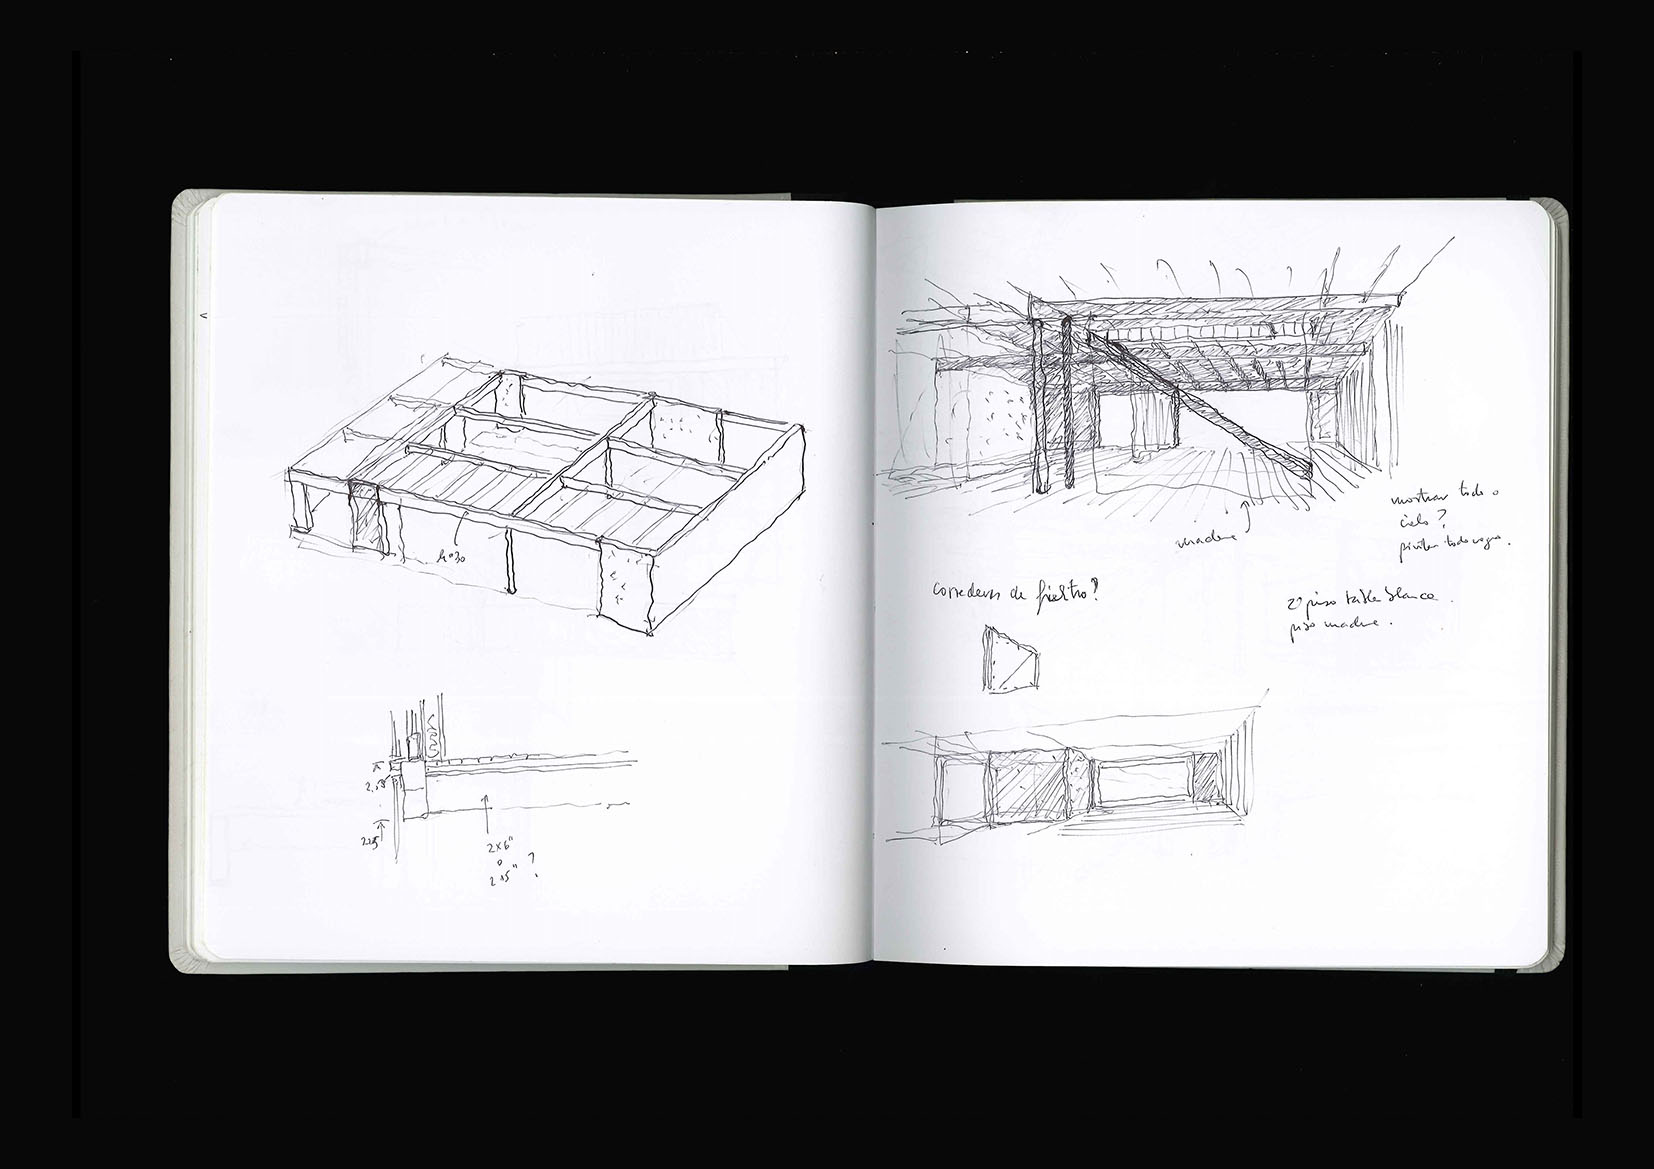 h=30
2.5
2.25
2x6"
o
2 15" ?
madera
mostrar todo o
cielo?
pintar todo negro.
correderas de fieltro?
2º piso tabla blanca.
piso madera.